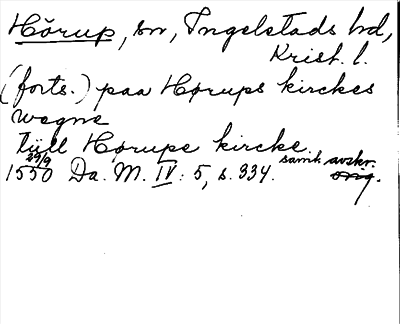 Hörup, sn, Ingelstads hd,
Krist. l.
(forts.) paa Hørups kirckes
wegne
tüll Hørupe kircke
1550 29/9 Da. M. IV: 5, s. 334. samt. avskr.
orig.